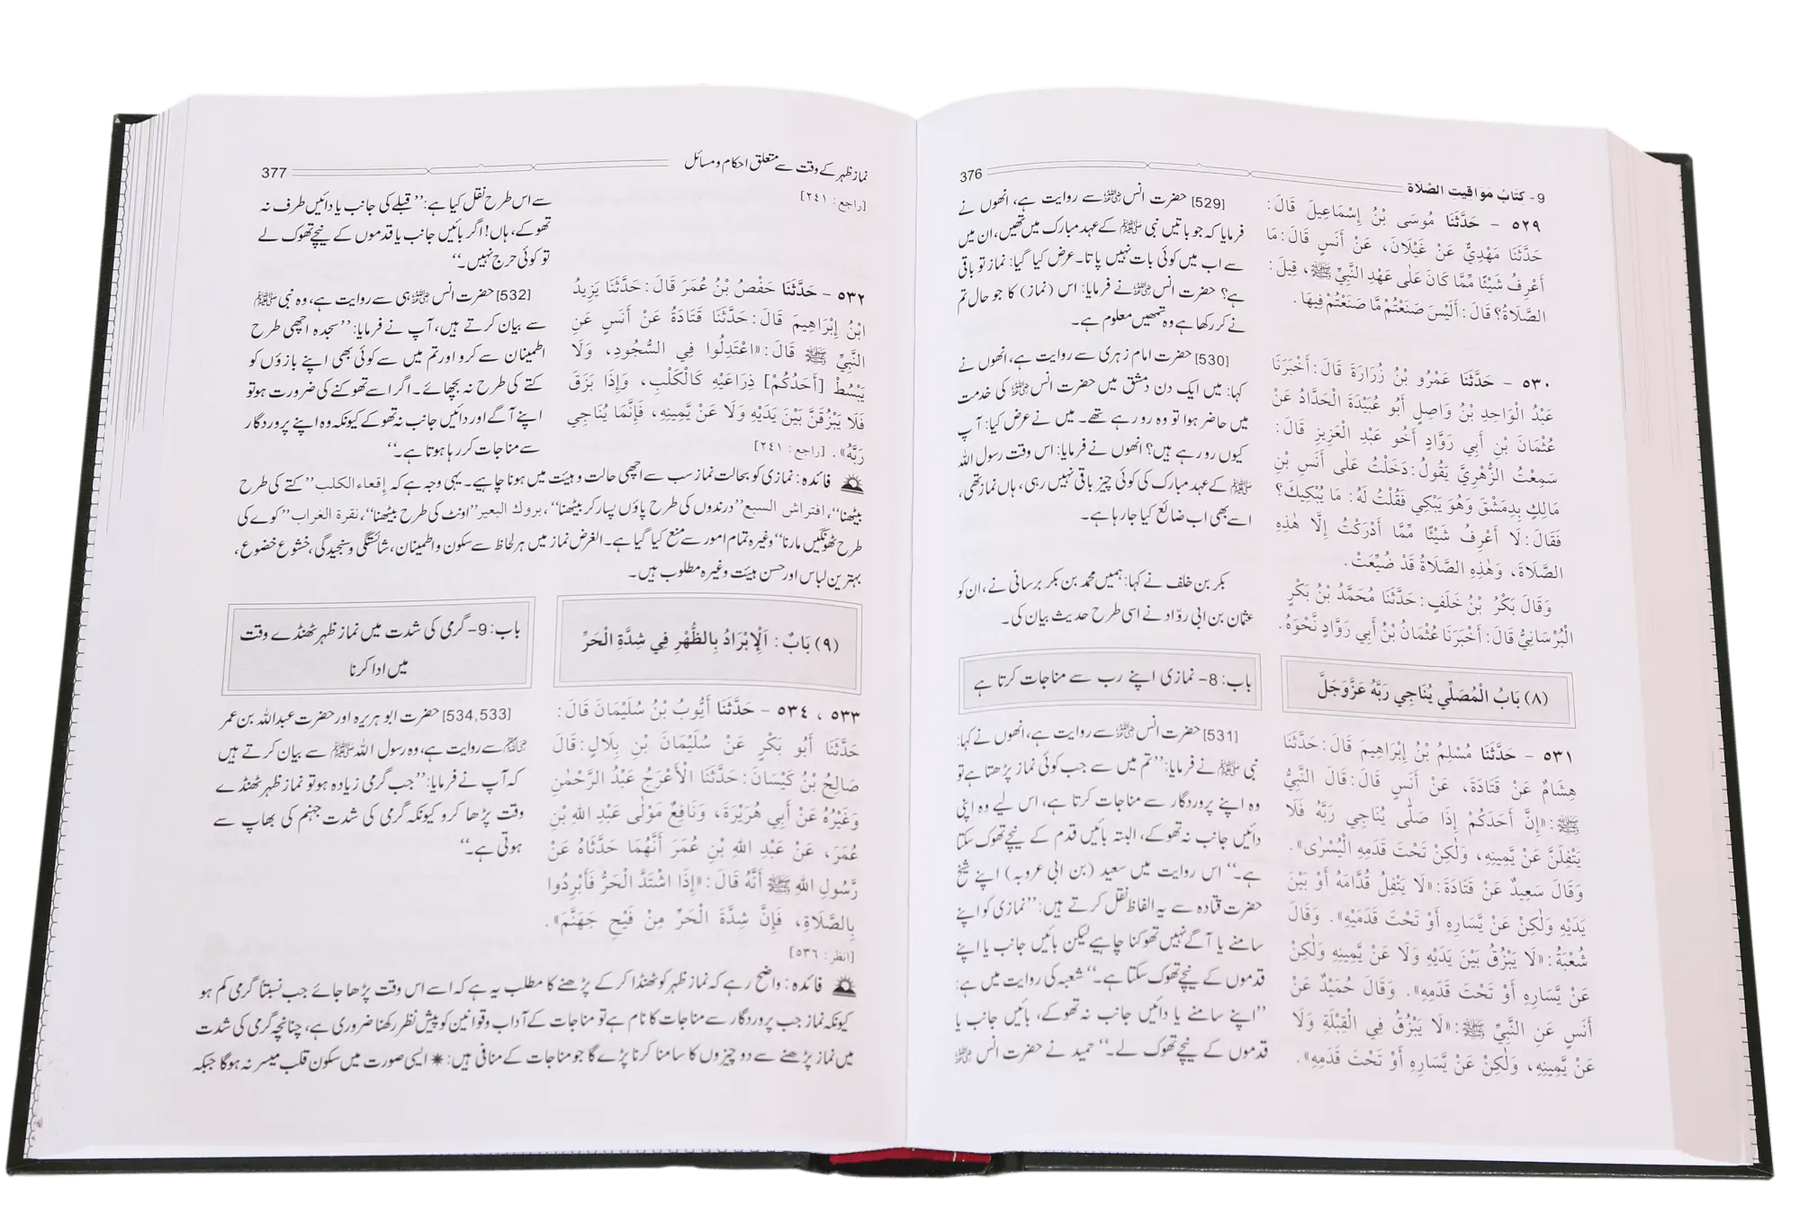 9- كتابُ مَوَاقيت الصَّلَاة
376
٥٢٩ - حَدَّثَنَا مُوسَى بْنُ إِسْمَاعِيلَ قَالَ:
حَدَّثَنَا مَهْدِيٌّ عَنْ غَيْلَانَ، عَنْ أَنَسٍ قَالَ: مَا
أَعْرِفُ شَيْئًا مِّمَّا كَانَ عَلَى عَهْدِ النَّبِيِّ ﷺ، قِيلَ:
الصَّلَاةُ؟ قَالَ: أَلَيْسَ صَنَعْتُمْ مَّا صَنَعْتُمْ فِيهَا.
٥٣٠ - حَدَّثَنَا عَمْرُو بْنُ زُرَارَةَ قَالَ: أَخْبَرَنَا
عَبْدُ الْوَاحِدِ بْنُ وَاصِلٍ أَبُو عُبَيْدَةَ الْحَدَّادُ عَنْ
عُثْمَانَ بْنِ أَبِي رَوَّادٍ أَخُو عَبْدِ الْعَزِيزِ قَالَ:
سَمِعْتُ الزُّهْرِيَّ يَقُولُ: دَخَلْتُ عَلَى أَنَسِ بْنِ
مَالِكٍ بِدِمَشْقَ وَهُوَ يَبْكِي فَقُلْتُ لَهُ: مَا يُبْكِيكَ؟
فَقَالَ: لَا أَعْرِفُ شَيْئًا مِّمَّا أَدْرَكْتُ إِلَّا هَذِهِ
الصَّلَاةَ، وَهَذِهِ الصَّلَاةُ قَدْ ضُيِّعَتْ.
وَقَالَ بَكْرُ بْنُ خَلَفٍ: حَدَّثَنَا مُحَمَّدُ بْنُ بَكْرٍ
الْبُرْسَانِيُّ قَالَ: أَخْبَرَنَا عُثْمَانُ بْنُ أَبِي رَوَّادٍ نَحْوَهُ.
(٨) بَابُ الْمُصَلِّي يُنَاجِي رَبَّهُ عَزَّوَجَلَّ
٥٣١ - حَدَّثَنَا مُسْلِمُ بْنُ إِبْرَاهِيمَ قَالَ: حَدَّثَنَا
هِشَامٌ عَنْ قَتَادَةَ، عَنْ أَنَسٍ قَالَ: قَالَ النَّبِيُّ
ﷺ: «إِنَّ أَحَدَكُمْ إِذَا صَلَّى يُنَاجِي رَبَّهُ فَلَا
يَتْفِلَنَّ عَنْ يَّمِينِهِ، وَلٰكِنْ تَحْتَ قَدَمِهِ الْيُسْرَى».
وَقَالَ سَعِيدٌ عَنْ قَتَادَةَ: «لَا يَتْفِلُ قُدَّامَهُ أَوْ بَيْنَ
يَدَيْهِ وَلٰكِنْ عَنْ يَّسَارِهِ أَوْ تَحْتَ قَدَمَيْهِ». وَقَالَ
شُعْبَةُ: «لَا يَبْزُقُ بَيْنَ يَدَيْهِ وَلَا عَنْ يَّمِينِهِ وَلٰكِنْ
عَنْ يَّسَارِهِ أَوْ تَحْتَ قَدَمِهِ». وَقَالَ حُمَيْدٌ عَنْ
أَنَسٍ عَنِ النَّبِيِّ ﷺ: «لَا يَبْزُقْ فِي الْقِبْلَةِ وَلَا
عَنْ يَّمِينِهِ، وَلٰكِنْ عَنْ يَّسَارِهِ أَوْ تَحْتَ قَدَمِهِ».
[529] حضرت انس ﷜ سے روایت ہے، انھوں نے
فرمایا کہ جو باتیں نبی ﷺ کے عہد مبارک میں تھیں، ان میں
سے اب میں کوئی بات نہیں پاتا۔ عرض کیا گیا: نماز تو باقی
ہے؟ حضرت انس ﷜ نے فرمایا: اس (نماز) کا جو حال تم
نے کر رکھا ہے وہ تمھیں معلوم ہے۔
[530] حضرت امام زہری سے روایت ہے، انھوں نے
کہا: میں ایک دن دمشق میں حضرت انس ﷜ کی خدمت
میں حاضر ہوا تو وہ رو رہے تھے۔ میں نے عرض کیا: آپ
کیوں رو رہے ہیں؟ انھوں نے فرمایا: اس وقت رسول اللہ
ﷺ کے عہد مبارک کی کوئی چیز باقی نہیں رہی، ہاں نماز تھی،
اسے بھی اب ضائع کیا جا رہا ہے۔
بکر بن خلف نے کہا: ہمیں محمد بن بکر برسانی نے، ان کو
عثمان بن ابی روّاد نے اسی طرح حدیث بیان کی۔
باب: 8- نمازی اپنے رب سے مناجات کرتا ہے
[531] حضرت انس ﷜ سے روایت ہے، انھوں نے کہا:
نبی ﷺ نے فرمایا: ’’تم میں سے جب کوئی نماز پڑھتا ہے تو
وہ اپنے پروردگار سے مناجات کرتا ہے، اس لیے وہ اپنی
دائیں جانب نہ تھوکے، البتہ بائیں قدم کے نیچے تھوک سکتا
ہے۔‘‘ اس روایت میں سعید (بن ابی عروبہ) اپنے شیخ
حضرت قتادہ سے یہ الفاظ نقل کرتے ہیں: ’’نمازی کو اپنے
سامنے یا آگے نہیں تھوکنا چاہیے لیکن بائیں جانب یا اپنے
قدموں کے نیچے تھوک سکتا ہے۔‘‘ شعبہ کی روایت میں ہے:
’’اپنے سامنے یا دائیں جانب نہ تھوکے، بائیں جانب یا
قدموں کے نیچے تھوک لے۔‘‘ حمید نے حضرت انس ﷜
نماز ظہر کے وقت سے متعلق احکام و مسائل
377
[راجع: ٢٤١]
٥٣٢ - حَدَّثَنَا حَفْصُ بْنُ عُمَرَ قَالَ: حَدَّثَنَا يَزِيدُ
ابْنُ إِبْرَاهِيمَ قَالَ: حَدَّثَنَا قَتَادَةُ عَنْ أَنَسٍ عَنِ
النَّبِيِّ ﷺ قَالَ: «اعْتَدِلُوا فِي السُّجُودِ، وَلَا
يَبْسُطْ [أَحَدُكُمْ] ذِرَاعَيْهِ كَالْكَلْبِ، وَإِذَا بَزَقَ
فَلَا يَبْزُقَنَّ بَيْنَ يَدَيْهِ وَلَا عَنْ يَّمِينِهِ، فَإِنَّمَا يُنَاجِي
رَبَّهُ». [راجع: ٢٤١]
سے اس طرح نقل کیا ہے: ’’قبلے کی جانب یا دائیں طرف نہ
تھوکے، ہاں! اگر بائیں جانب یا قدموں کے نیچے تھوک لے
تو کوئی حرج نہیں۔‘‘
[532] حضرت انس ﷜ ہی سے روایت ہے، وہ نبی ﷺ
سے بیان کرتے ہیں، آپ نے فرمایا: ’’سجدہ اچھی طرح
اطمینان سے کرو اور تم میں سے کوئی بھی اپنے بازؤں کو
کتے کی طرح نہ بچھائے۔ اگر اسے تھوکنے کی ضرورت ہو تو
اپنے آگے اور دائیں جانب نہ تھوکے کیونکہ وہ اپنے پروردگار
سے مناجات کر رہا ہوتا ہے۔‘‘
فائدہ: نمازی کو بحالت نماز سب سے اچھی حالت و ہیئت میں ہونا چاہیے۔ یہی وجہ ہے کہ إقعاء الكلب ’’کتے کی طرح
بیٹھنا‘‘، افتراش السبع ’’درندوں کی طرح پاؤں پسار کر بیٹھنا‘‘، بروك البعير ’’اونٹ کی طرح بیٹھنا‘‘، نقرة الغراب ’’کوے کی
طرح ٹھونگیں مارنا‘‘ وغیرہ تمام امور سے منع کیا گیا ہے۔ الغرض نماز میں ہر لحاظ سے سکون و اطمینان، شائستگی و سنجیدگی، خشوع خضوع،
بہترین لباس اور حسن ہیئت وغیرہ مطلوب ہیں۔
(٩) بَابٌ: اَلْإِبْرَادُ بِالظُّهْرِ فِي شِدَّةِ الْحَرِّ
باب: 9- گرمی کی شدت میں نماز ظہر ٹھنڈے وقت
میں ادا کرنا
٥٣٣، ٥٣٤ - حَدَّثَنَا أَيُّوبُ بْنُ سُلَيْمَانَ قَالَ:
حَدَّثَنَا أَبُو بَكْرٍ عَنْ سُلَيْمَانَ بْنِ بِلَالٍ: قَالَ
صَالِحُ بْنُ كَيْسَانَ: حَدَّثَنَا الْأَعْرَجُ عَبْدُ الرَّحْمٰنِ
وَغَيْرُهُ عَنْ أَبِي هُرَيْرَةَ، وَنَافِعٌ مَوْلَى عَبْدِ اللهِ بْنِ
عُمَرَ، عَنْ عَبْدِ اللهِ بْنِ عُمَرَ أَنَّهُمَا حَدَّثَاهُ عَنْ
رَّسُولِ اللهِ ﷺ أَنَّهُ قَالَ: «إِذَا اشْتَدَّ الْحَرُّ فَأَبْرِدُوا
بِالصَّلَاةِ، فَإِنَّ شِدَّةَ الْحَرِّ مِنْ فَيْحِ جَهَنَّمَ».
[انظر: ٥٣٦]
[534,533] حضرت ابو ہریرہ اور حضرت عبداللہ بن عمر
﷢ سے روایت ہے، وہ رسول اللہ ﷺ سے بیان کرتے ہیں
کہ آپ نے فرمایا: ’’جب گرمی زیادہ ہو تو نماز ظہر ٹھنڈے
وقت پڑھا کرو کیونکہ گرمی کی شدت جہنم کی بھاپ سے
ہوتی ہے۔‘‘
فائدہ: واضح رہے کہ نماز ظہر کو ٹھنڈا کر کے پڑھنے کا مطلب یہ ہے کہ اسے اس وقت پڑھا جائے جب نسبتاً گرمی کم ہو
کیونکہ نماز جب پروردگار سے مناجات کا نام ہے تو مناجات کے آداب و قوانین کو پیش نظر رکھنا ضروری ہے، چنانچہ گرمی کی شدت
میں نماز پڑھنے سے دو چیزوں کا سامنا کرنا پڑے گا جو مناجات کے منافی ہیں: ✷ ایسی صورت میں سکون قلب میسر نہ ہوگا جبکہ